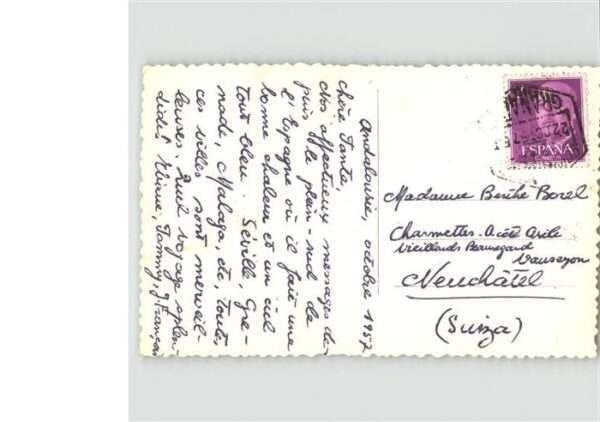 Andalousie, octobre 1957
Chère Tante,
Nos affectueux messages de-
puis le plein-sud de
l'Espagne où il fait une
bonne chaleur et un ciel
tout bleu. Séville, Gre-
nade, Malaga, etc, toutes
ces villes sont merveil-
leuses. Quel voyage splen-
dide! Tommy, François
ESPAÑA
GRANADA
Madame Berthe Borel
Charmettes - à côté Asile
Vieillards Beauregard
Vauseyon
Neuchâtel
(Suiza)